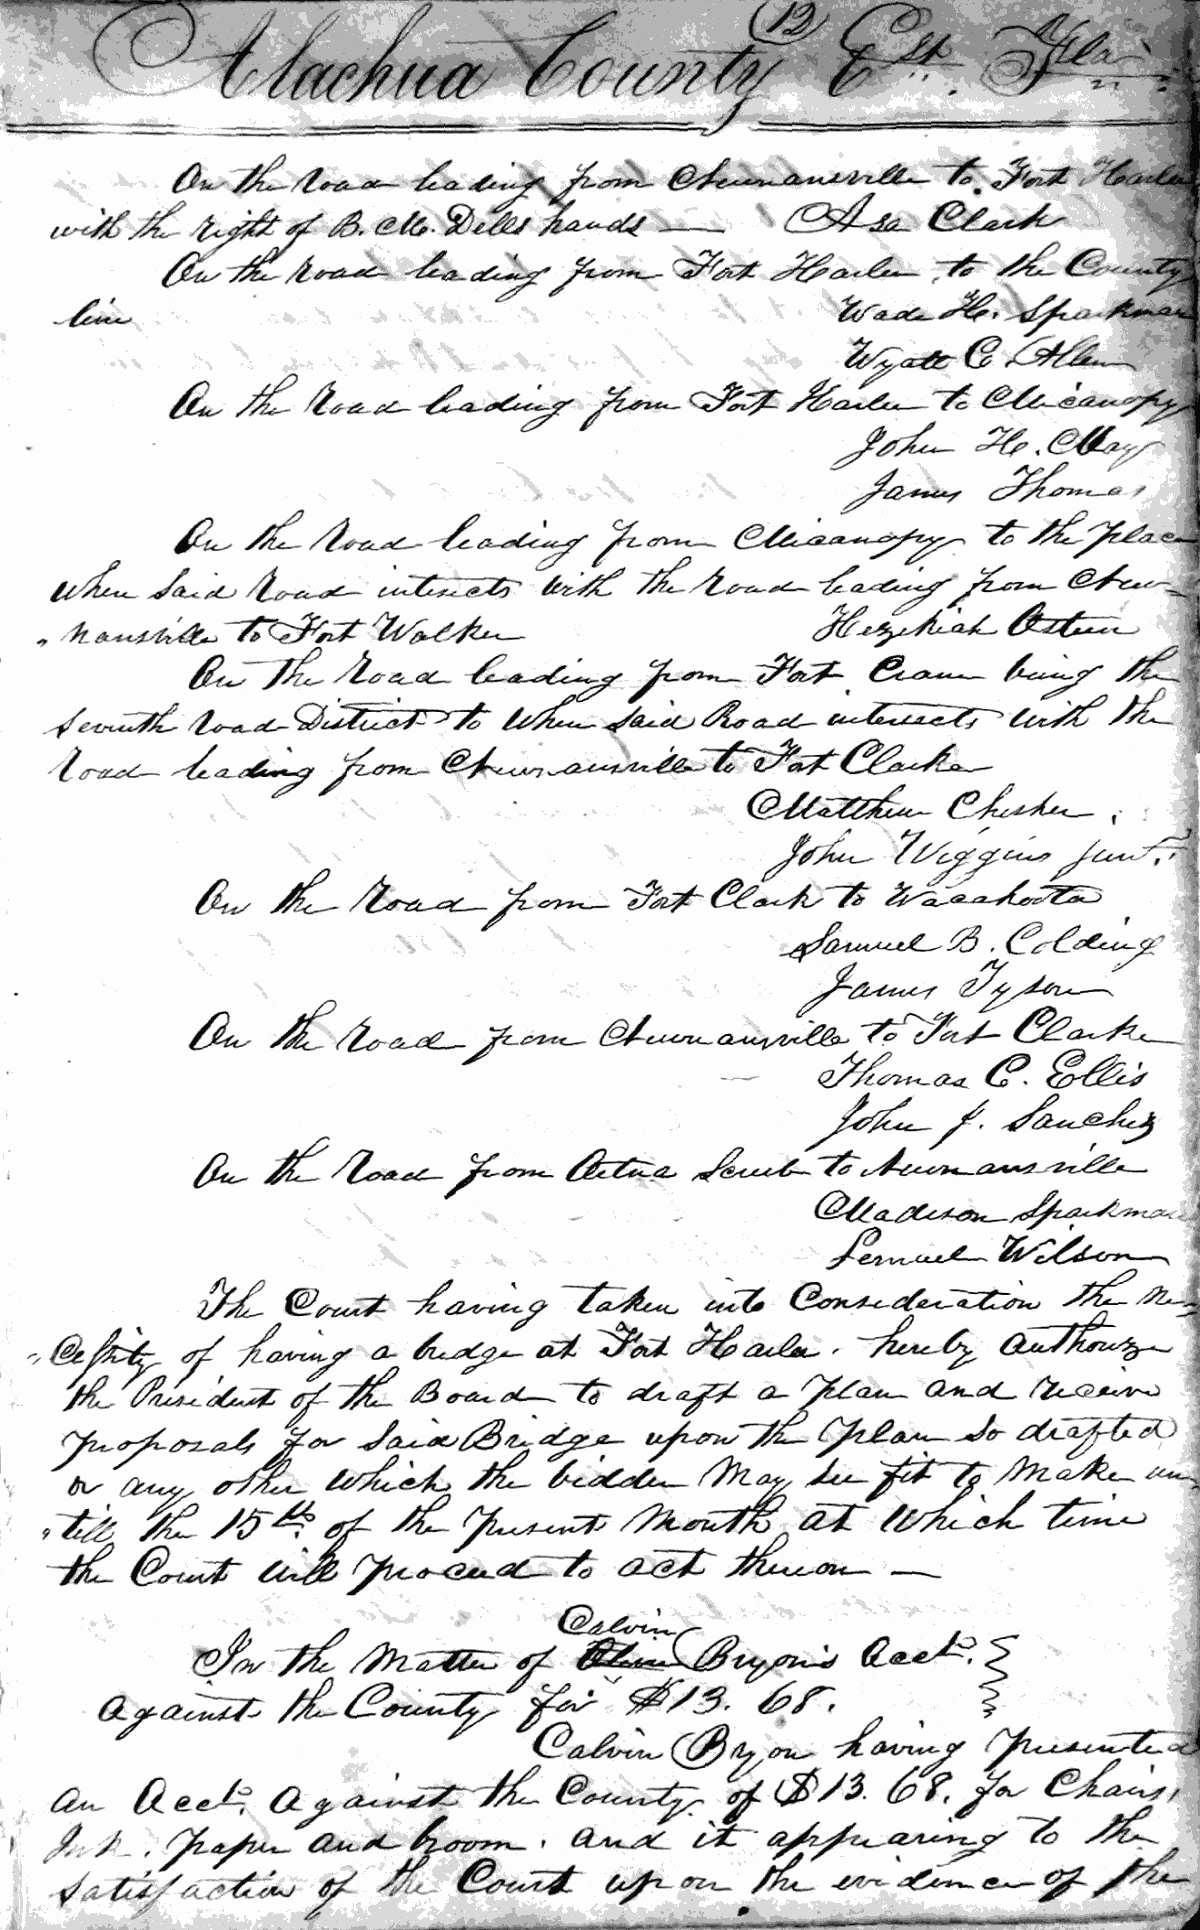 (12)
Alachua County Est. Fla.
On the road leading from Newnansville to Fort Harlee
with the right of B. M. Dells hands — Asa Clark
On the road leading from Fort Harlee to the County
line Wade H. Sparkman
Wyatt C. Allen
On the road leading from Fort Harlee to Micanopy
John H. May
James Thomas
On the road leading from Micanopy to the place
when said road intersects with the road leading from New=
"nansville to Fort Walker Hezekiah Osteen
On the road leading from Fort Crane being the
seventh road District to when said Road intersects with the
road leading from Newnansville to Fort Clarke
Matthew Chesher
John Wiggins junr.
On the road from Fort Clark to Wacahoota
Samuel B. Colding
James Tyson
On the road from Newnansville to Fort Clarke
Thomas C. Ellis
John J. Sanchez
On the road from Oetna Scrub to Newnansville
Madison Sparkman
Lemuel Wilson
The Court having taken into Consideration the ne=
"cessity of having a bridge at Fort Harlee. hereby authorize
the President of the Board to draft a plan and receive
proposals for said Bridge upon the plan so drafted
or any other which the bidder may see fit to make un=
"till the 15th. of the present month at which time
the Court will proceed to act thereon —
Calvin
In the matter of Bryon's Acct.
against the County for $13.68.
Calvin Bryon having presented
an Acct. against the County of $13.68. for Chairs,
Ink, paper and broom. and it appearing to the
satisfaction of the Court upon the evidence of the